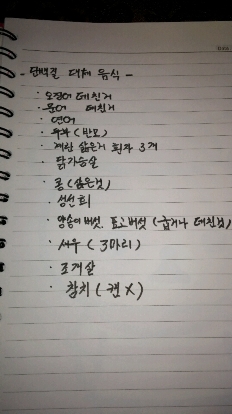 - 단백질 대체 음식 -
· 오징어 데친거
· 문어 데친거
· 연어
· 두부 (반모)
· 계란 삶은거 흰자 3개
· 닭가슴살
· 콩 (삶은것)
· 생선회
· 양송이버섯, 표고버섯 (굽거나 데친것)
· 새우 (3마리)
· 조개살
· 참치 (캔 X)